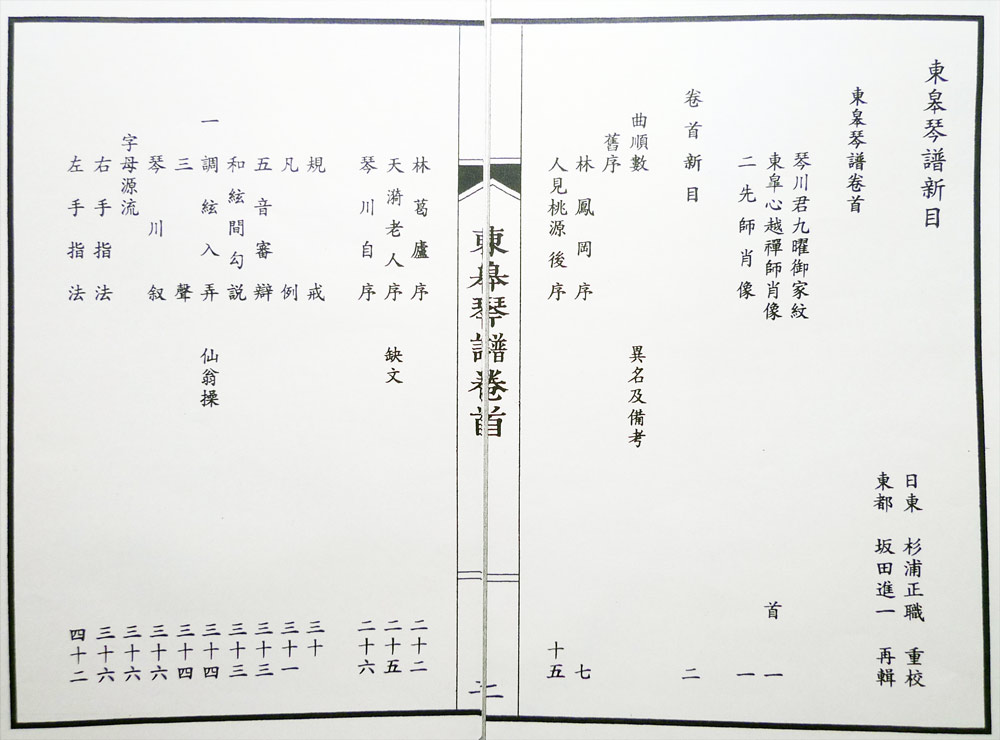 東皋琴譜新目
日東 杉浦正職 重校
東都 坂田進一 再輯
東皋琴譜卷首
琴川君九曜御家紋
東皐心越禪師肖像 首 一
二先師肖像 一
卷首新目 二
曲順數 異名及備考
舊序
林鳳岡序 七
人見桃源後序 十五
東皋琴譜卷首
二
林葛廬序 二十二
天漪老人序 缺文 二十五
琴川自序 二十六
規戒 三十
凡例 三十一
五音審辯 三十三
和絃間勾説 三十三
一調絃入弄 仙翁操 三十四
三聲 三十四
琴川叙 三十六
字母源流 三十六
右手指法 三十六
左手指法 四十二